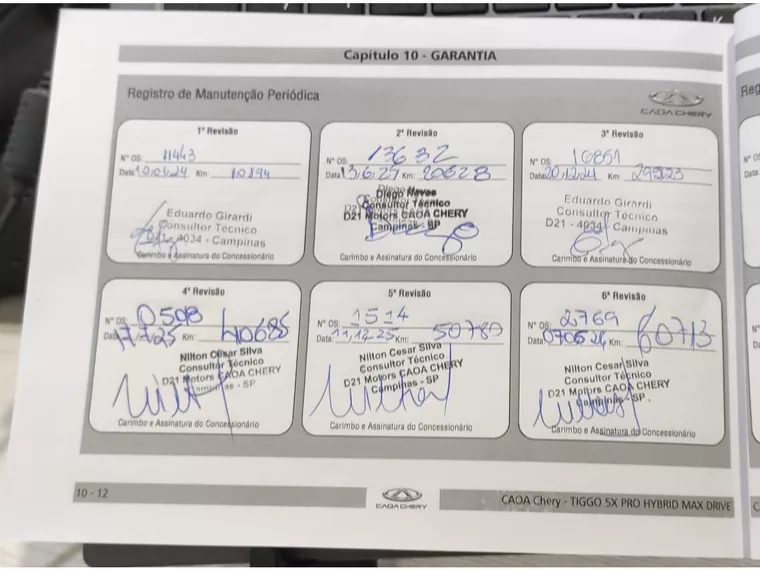 Capítulo 10 - GARANTIA
Registro de Manutenção Periódica
CAOA CHERY
Reg
1ª Revisão
Nº OS: 11443
Data: 10/01/24 Km: 10194
Eduardo Girardi
Consultor Técnico
D21 4034 - Campinas
Carimbo e Assinatura do Concessionário
2ª Revisão
Nº OS: 13632
Data: Km: 20628
Diego Neves
Consultor Técnico
D21 Motors CAOA CHERY
Campinas - SP
Carimbo e Assinatura do Concessionário
3ª Revisão
Nº OS: 16851
Data: 20/12/24 Km:
Eduardo Girardi
Consultor Técnico
D21 - 4034 Campinas
Carimbo e Assinatura do Concessionário
4ª Revisão
Nº OS:
Data: 17.7.25 Km: 40685
Nilton Cesar Silva
Consultor Técnico
D21 Motors CAOA CHERY
Campinas - SP
Carimbo e Assinatura do Concessionário
5ª Revisão
Nº OS: 1514
Data: 11.12.25 Km: 50780
Nilton Cesar Silva
Consultor Técnico
D21 Motors CAOA CHERY
Campinas - SP
Carimbo e Assinatura do Concessionário
6ª Revisão
Nº OS: 2769
Data: Km: 60713
Nilton Cesar Silva
Consultor Técnico
D21 Motors CAOA CHERY
Campinas - SP.
Carimbo e Assinatura do Concessionário
10 - 12
CAOA CHERY
CAOA Chery - TIGGO 5X PRO HYBRID MAX DRIVE